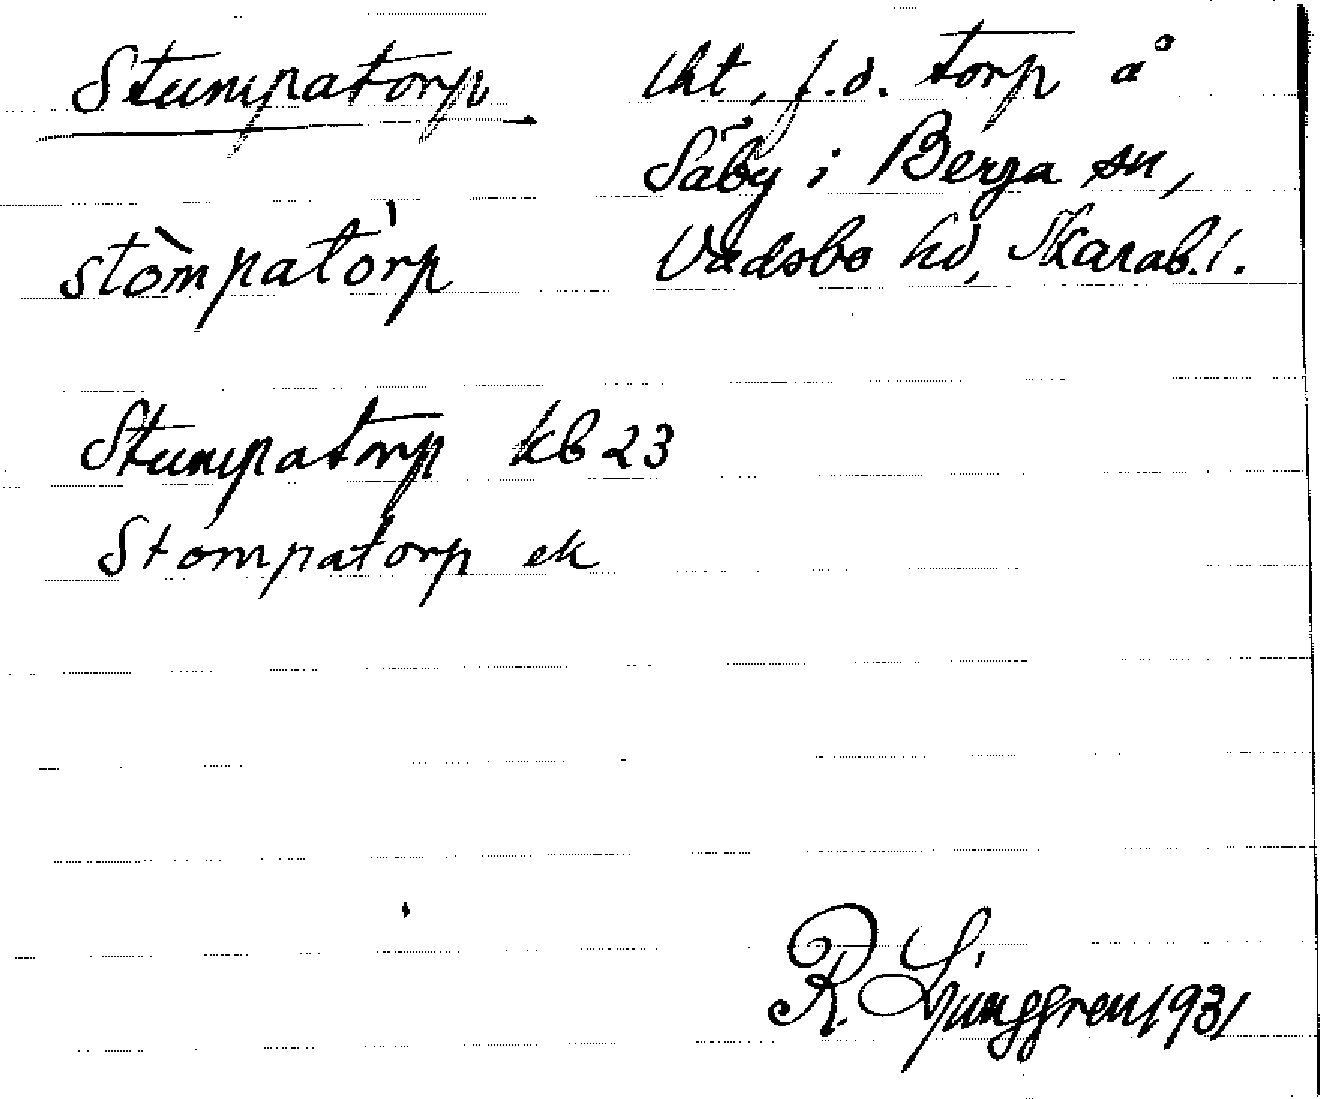 Stumpatorp
lht, f.d. torp å
Säby i Berga sn,
Vadsbo hd, Skarab.l.
stòmpatórp
Stumpatorp kb 23
Stompatorp ek
R. Ljunggren 1931